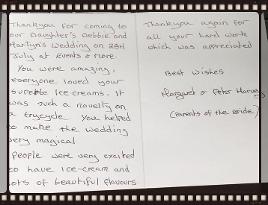 Thankyou for coming to
our Daughter's Debbie and
Martyn's Wedding on 28th
July at Events & More.
You were amazing,
everyone loved your
ice-creams. It
was such a novelty on
a trycycle. You helped
to make the wedding
very magical
People were very excited
to have Ice-cream and
lots of beautiful flavours
Thankyou again for
all your hard work
which was appreciated
Best Wishes
Margaret & Peter
(Parents of the Bride)